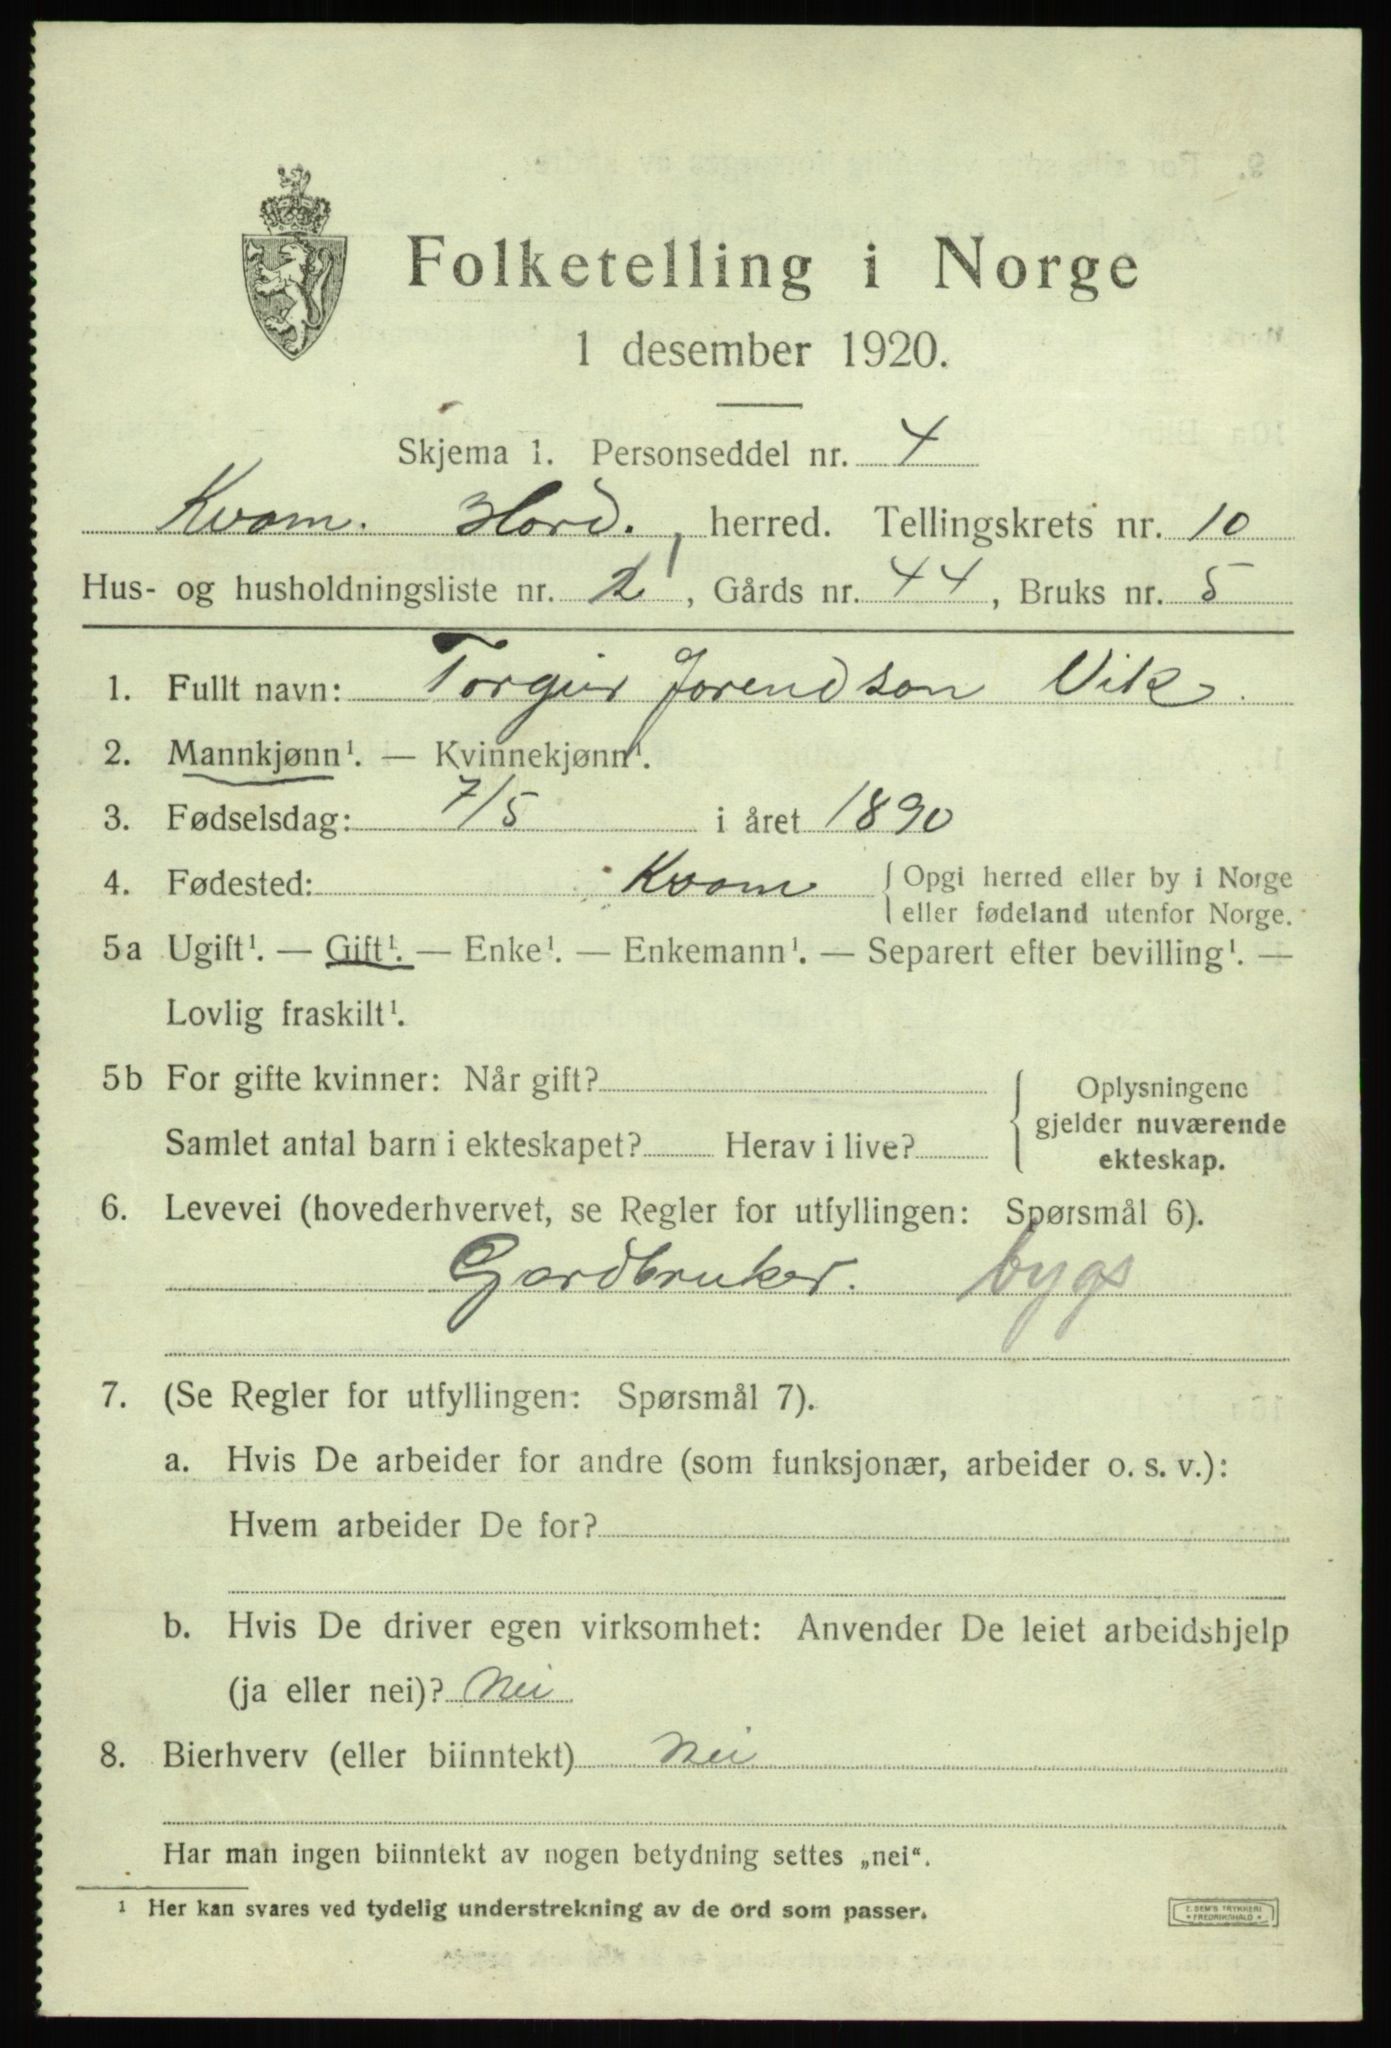 Folketelling i Norge
1 desember 1920.
Skjema 1. Personseddel nr. 4
Kvam. Hord., herred. Tellingskrets nr. 10
Hus- og husholdningsliste nr. 2, Gårds nr. 44, Bruks nr. 5
1. Fullt navn: Torgeir Jorendson Vik
2. Mannkjønn¹. — Kvinnekjønn¹.
3. Fødselsdag: 7/5 i året 1890
4. Fødested: Kvam { Opgi herred eller by i Norge
eller fødeland utenfor Norge.
5a Ugift¹. — Gift¹. — Enke¹. — Enkemann¹. — Separert efter bevilling¹. —
Lovlig fraskilt¹.
5b For gifte kvinner: Når gift? { Oplysningene
gjelder nuværende
Samlet antal barn i ekteskapet? Herav i live? ekteskap.
6. Levevei (hovederhvervet, se Regler for utfyllingen: Spørsmål 6).
Gardbruker. bygs
7. (Se Regler for utfyllingen: Spørsmål 7).
a. Hvis De arbeider for andre (som funksjonær, arbeider o. s. v.):
Hvem arbeider De for?
b. Hvis De driver egen virksomhet: Anvender De leiet arbeidshjelp
(ja eller nei)? Nei
8. Bierhverv (eller biinntekt) Nei
Har man ingen biinntekt av nogen betydning settes „nei“.
¹ Her kan svares ved tydelig understrekning av de ord som passer.
E. SEM'S TRYKKERI
FREDRIKSHALD